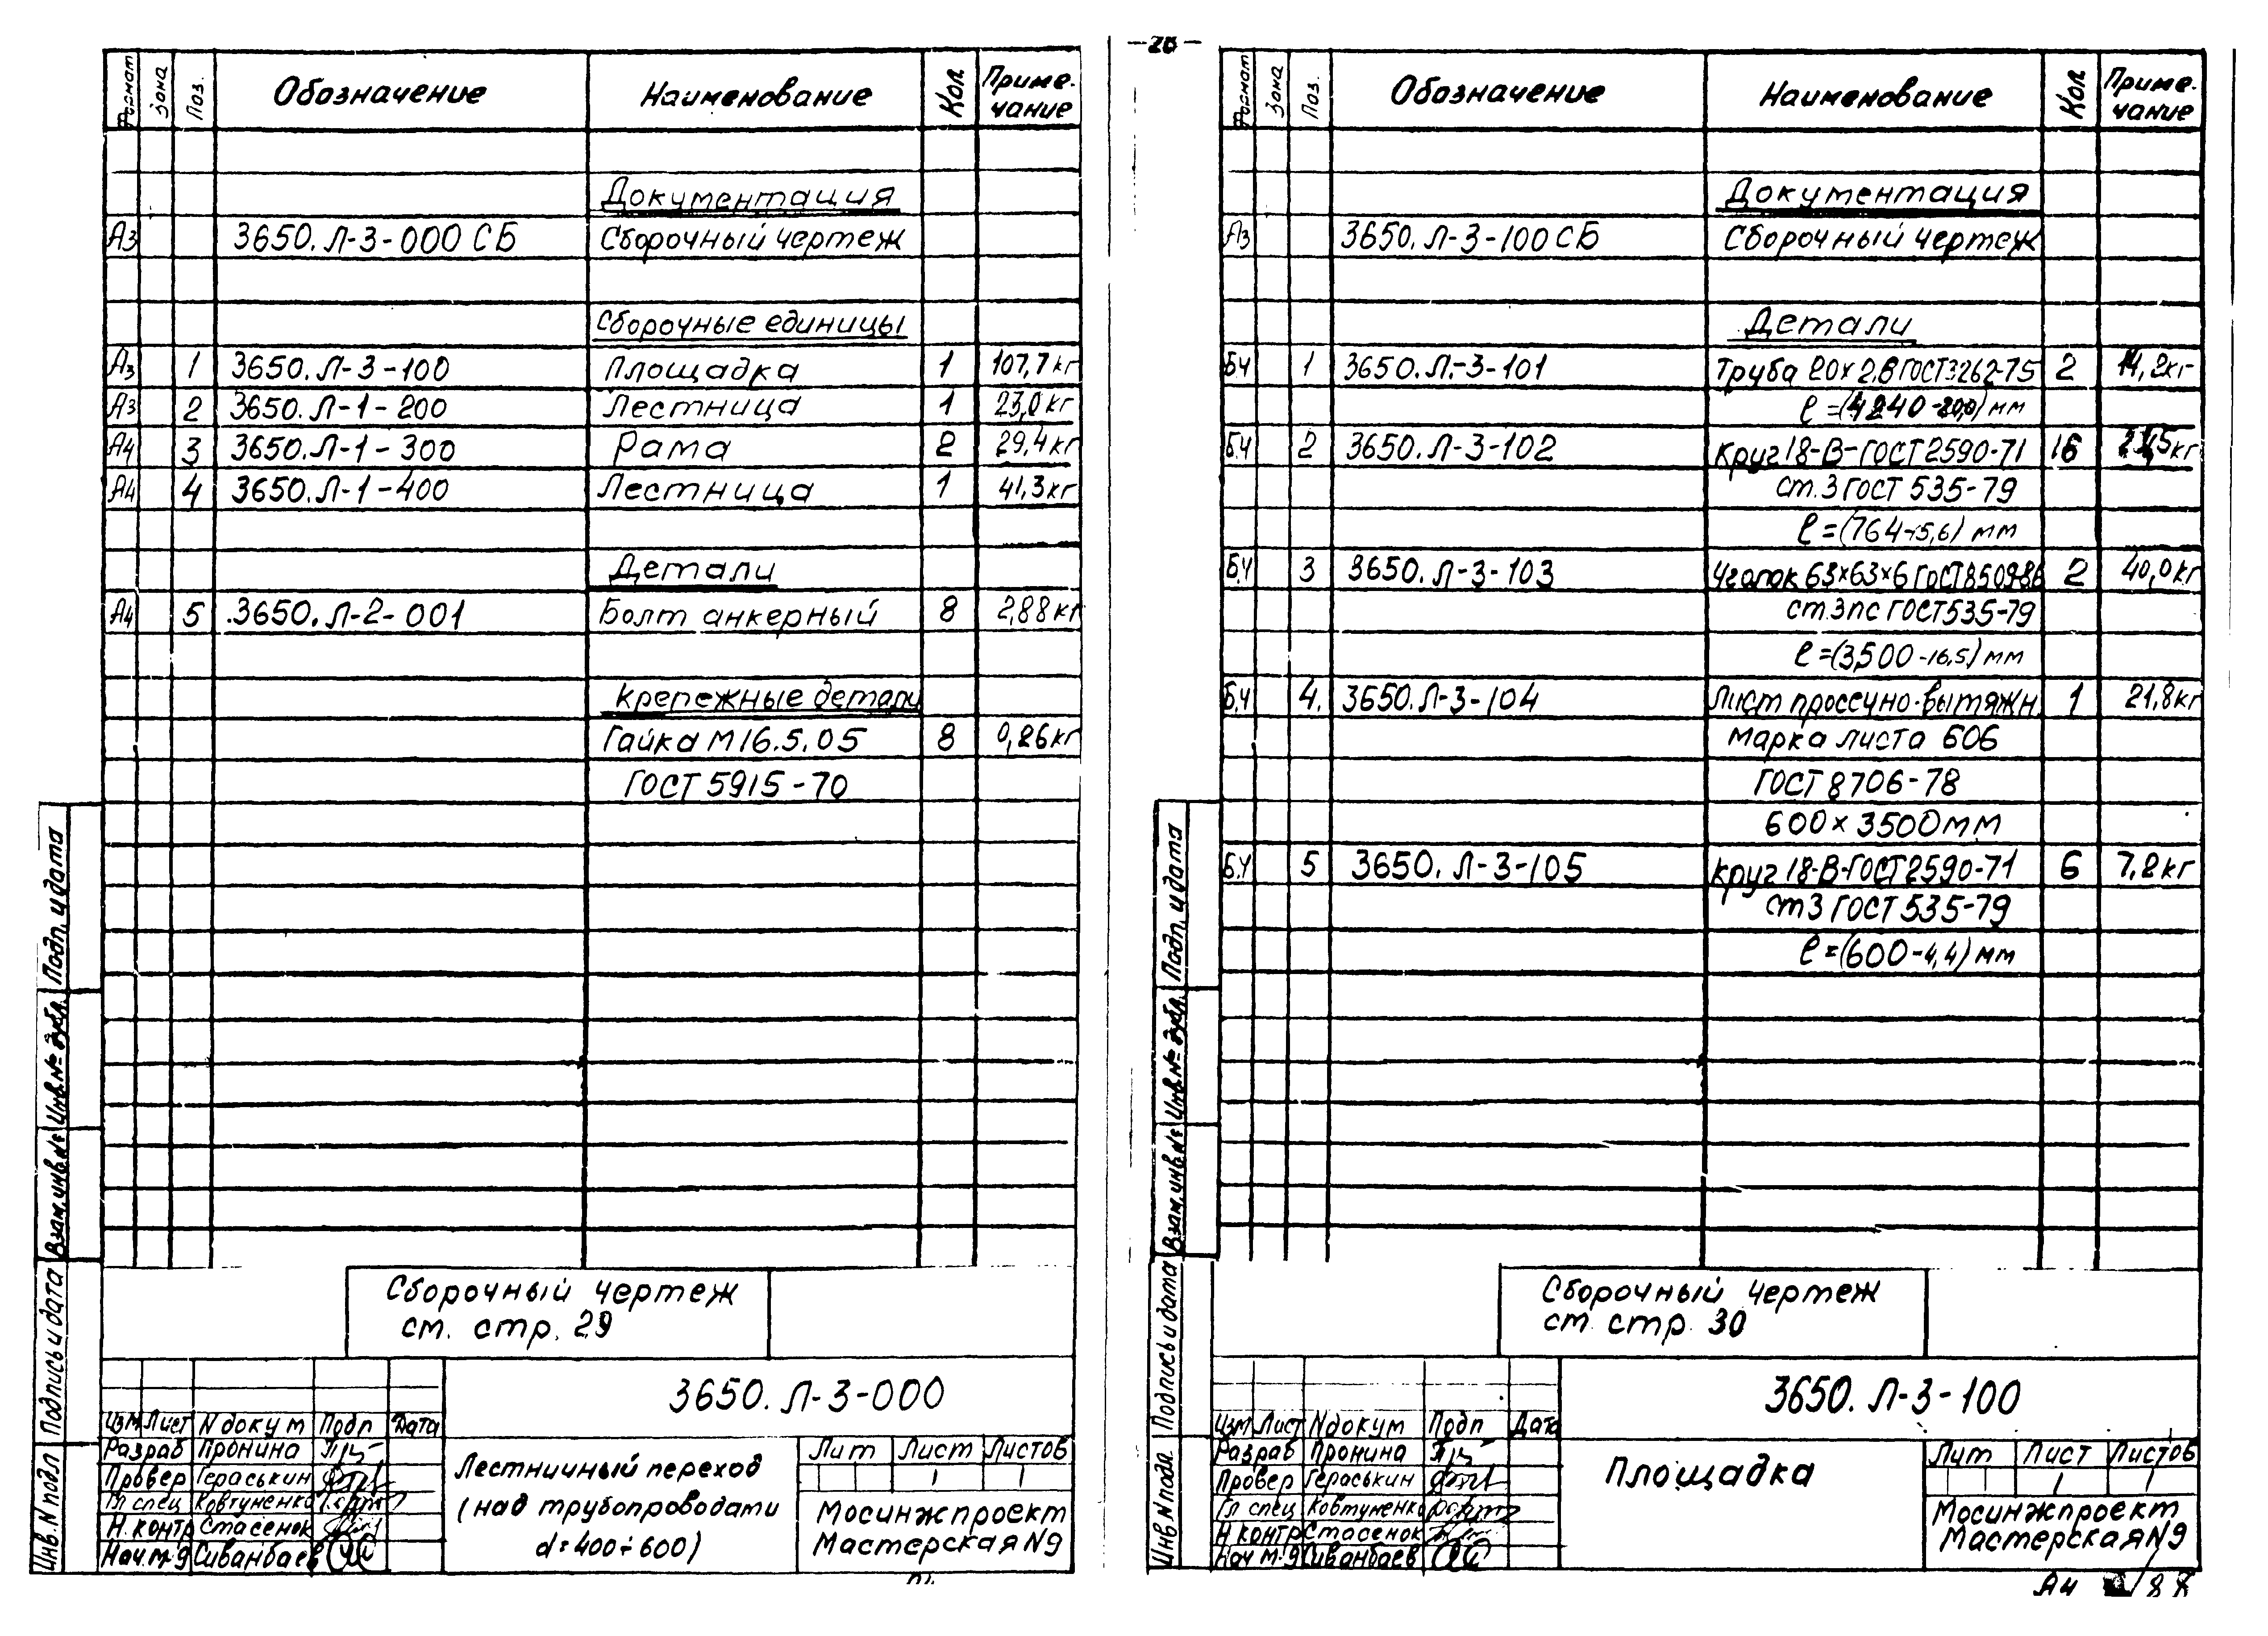 Формат Зона Поз. Обозначение Наименование Кол. Приме-чание
Документация
А3 3650.Л-3-000 СБ Сборочный чертеж
Сборочные единицы
А3 1 3650.Л-3-100 Площадка 1 107,7кг
А3 2 3650.Л-1-200 Лестница 1 23,0кг
А4 3 3650.Л-1-300 Рама 2 29,4кг
А4 4 3650.Л-1-400 Лестница 1 41,3кг
Детали
А4 5 3650.Л-2-001 Болт анкерный 8 2,88кг
Крепежные детали
Гайка М16.5.05 8 0,26кг
ГОСТ 5915-70
Подп. и дата
Инв.№ дубл.
Взам.инв.№
Подпись и дата
Инв.N подл
Сборочный чертеж
см. стр. 29
3650.Л-3-000
Изм Лист N докум Подп Дата
Разраб Пронина
Провер Гераськин
Гл спец Ковтуненко
Н.контр Стасенок
Нач.м-9 Сиванбаев
Лестничный переход
(над трубопроводами
d=400÷600)
Лит Лист Листов
1 1
Мосинжпроект
Мастерская N9
Формат Зона Поз. Обозначение Наименование Кол. Приме-чание
Документация
А3 3650.Л-3-100СБ Сборочный чертеж
Детали
БЧ 1 3650.Л-3-101 Труба 20х2,8 ГОСТ3262-75 2 14,2кг
ℓ=(4240-20,0) мм
Б.Ч 2 3650.Л-3-102 Круг 18-В-ГОСТ 2590-71 16
ст.3 ГОСТ 535-79
ℓ=(764-5,6) мм
Б.Ч 3 3650.Л-3-103 Уголок 63х63х6 ГОСТ8509-86 2 40,0кг
ст.3пс ГОСТ535-79
ℓ=(3500-16,5) мм
Б.Ч 4. 3650.Л-3-104 Лист просечно-вытяжн. 1 21,8кг
марка листа 606
ГОСТ 8706-78
600х3500мм
Б.Ч 5 3650.Л-3-105 Круг 18-В-ГОСТ2590-71 6 7,2кг
ст3 ГОСТ 535-79
ℓ=(600-4,4) мм
Подп. и дата
Инв.№ дубл.
Взам.инв.№
Подпись и дата
Инв N подл.
Сборочный чертеж
см. стр. 30
3650.Л-3-100
Изм Лист N докум Подп Дата
Разраб Пронина
Провер Гераськин
Гл спец Ковтуненко
Н контр Стасенок
Нач м-9 Сиванбаев
Площадка
Лит Лист Листов
1 1
Мосинжпроект
Мастерская N9
А4